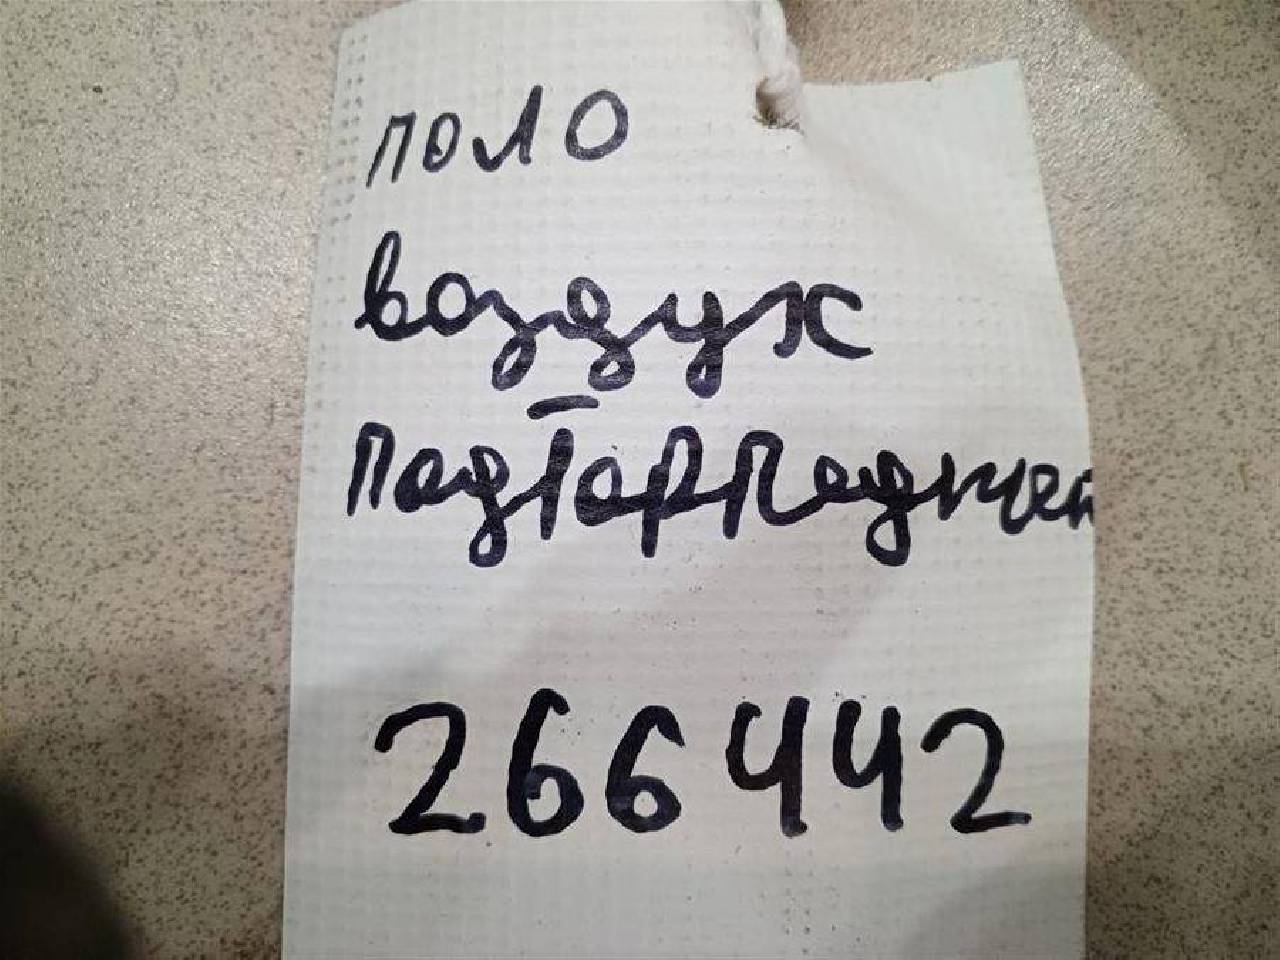 поло
воздух
Подторпедней
266442